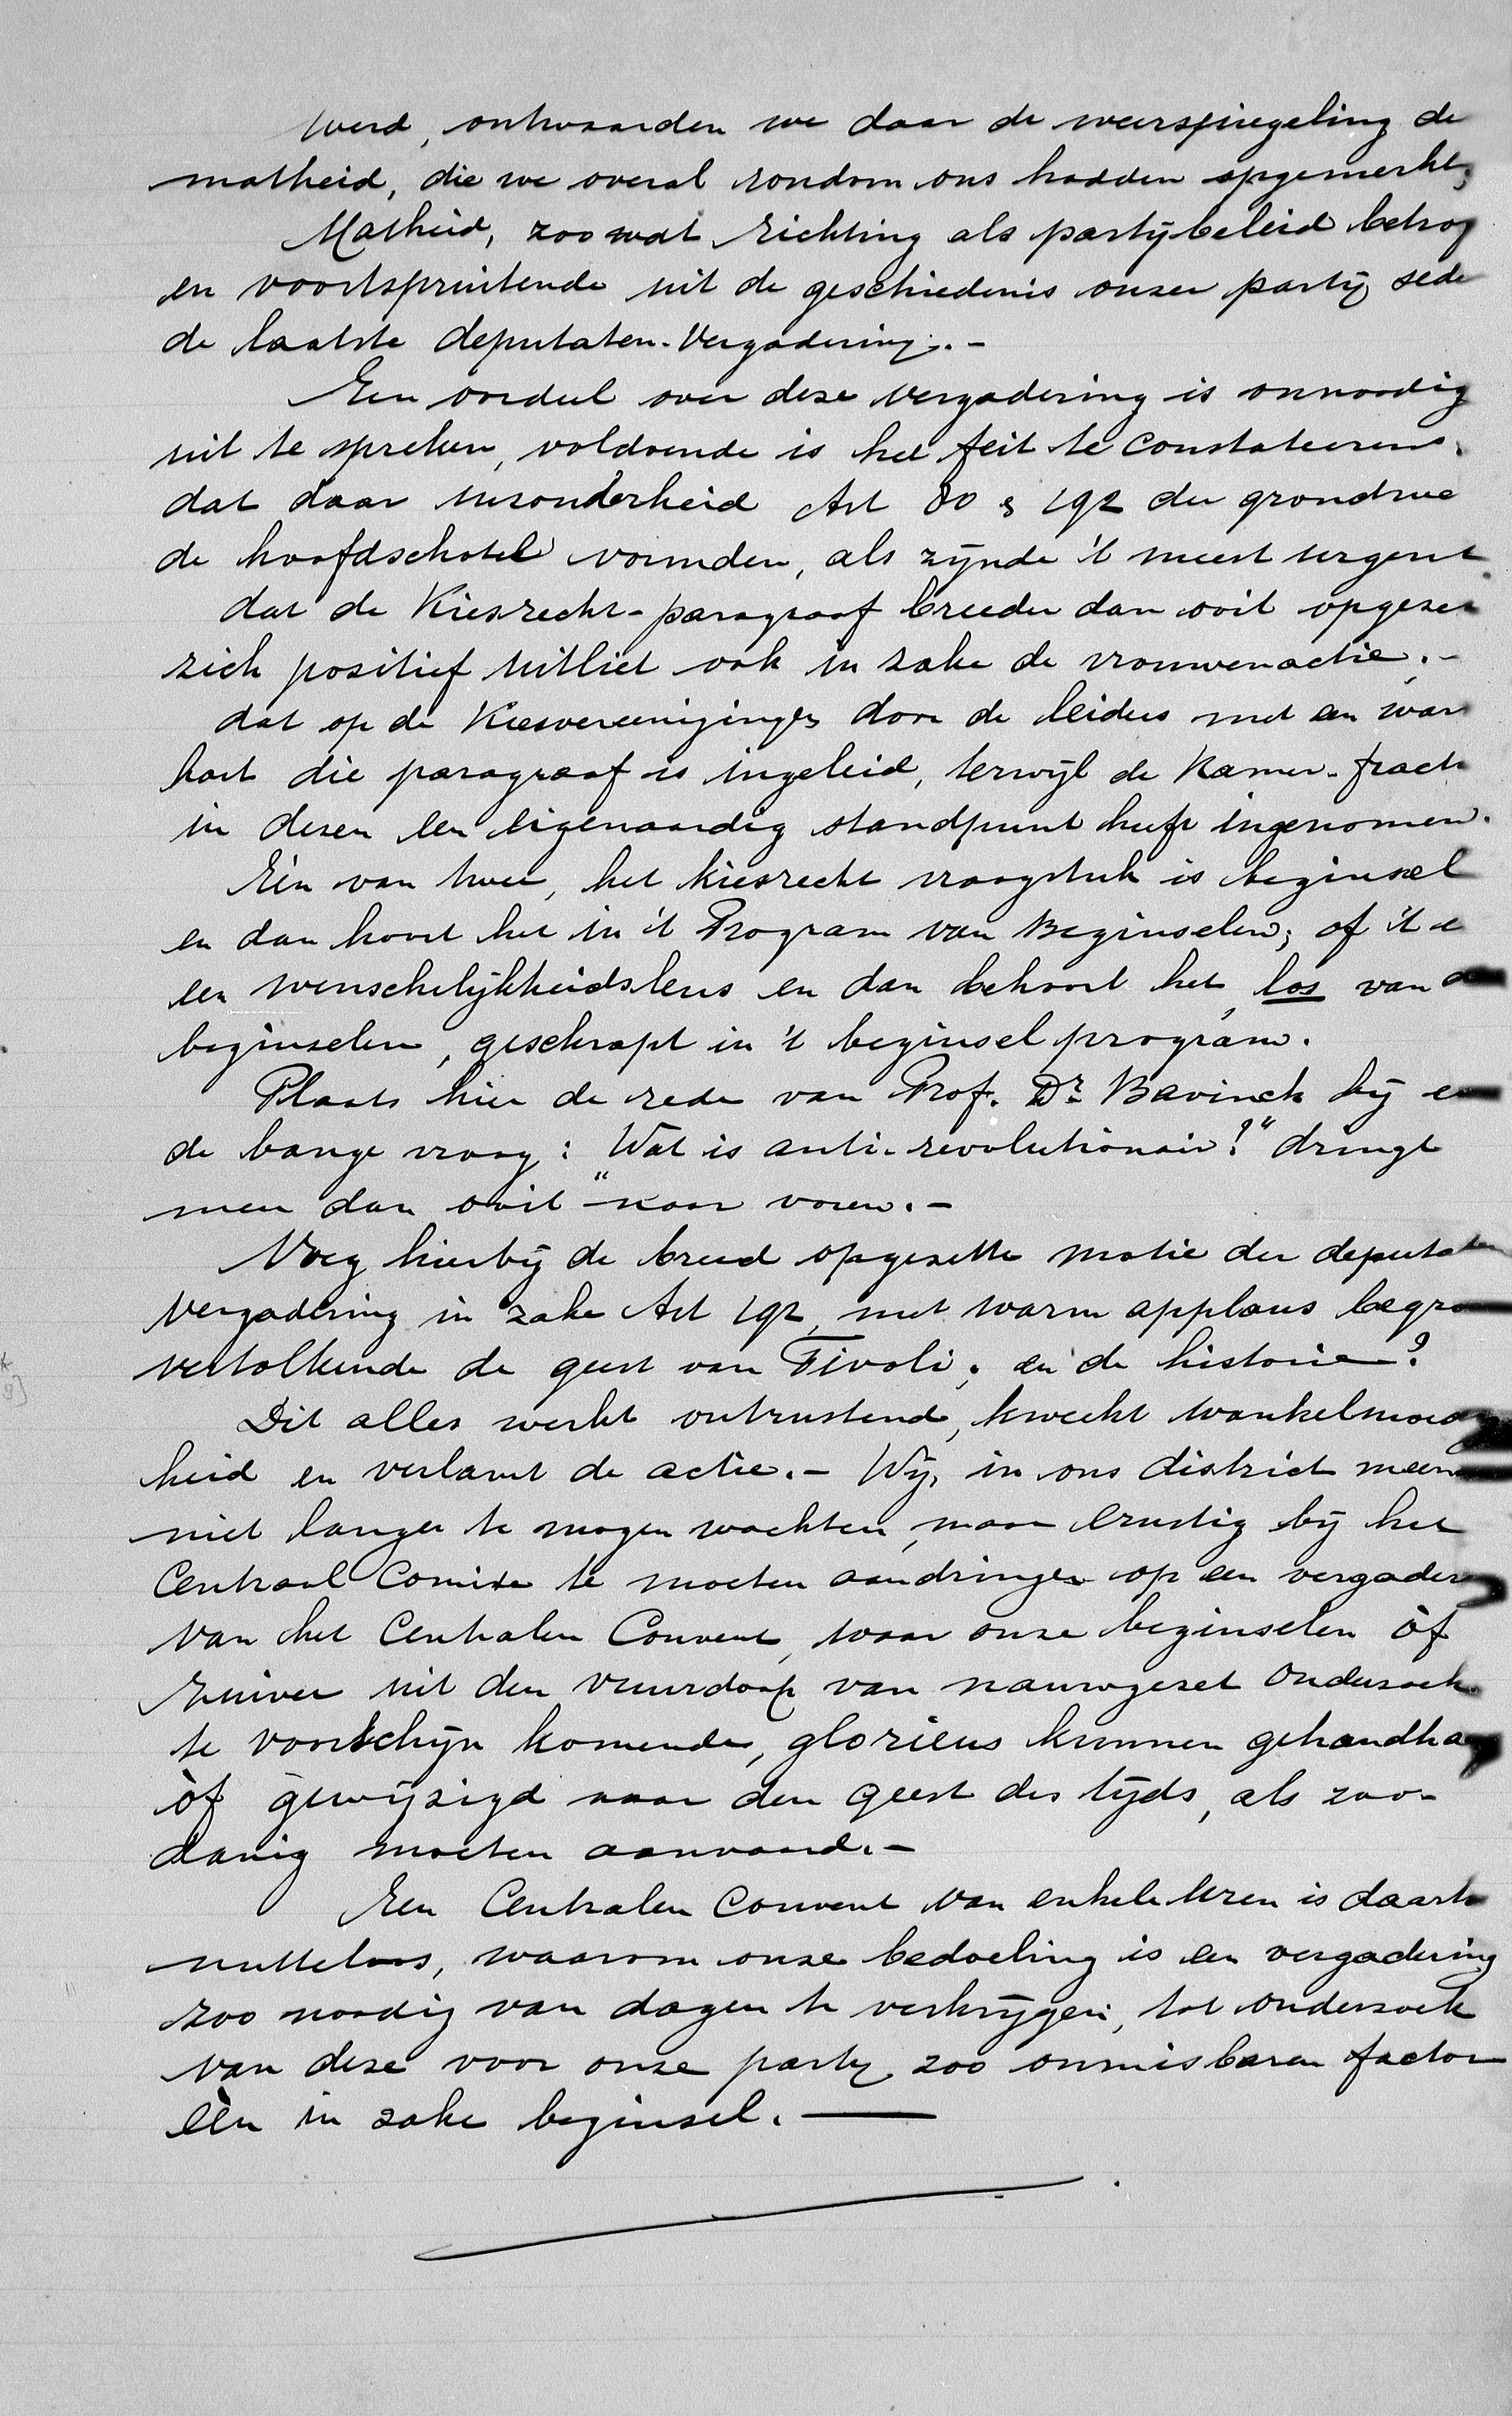 werd, ontwaarden we daar de weerspiegeling de
matheid, die we overal rondom ons hadden opgemerkt,
Matheid, zoo wat richting als partijbeleid betrof
en voortspruitende uit de geschiedenis onzer partij sede
de laatste deputaten-Vergadering.-
Een oordeel over deze vergadering is onnoodig
uit te spreken, voldoende is het feit te constateeren,
dat daar inzonderheid Art 80 & 192 der grondwe
de hoofdschotel vormden, als zijnde 't meest urgent
dat de Kiesrecht-paragraaf breeder dan ooit opgeze
zich positief uitliet ook in zake de vrouwenactie,-
dat op de Kiesvereenigingen door de leiders met een war
hart die paragraaf is ingeleid, terwijl de Kamer-fract
in dezen een eigenaardig standpunt heeft ingenomen.
Eén van twee, het kiesrecht vraagstuk is beginsel
en dan hoort het in 't Program van Beginselen; of 't
een wenschelijkheidsleus en dan behoort het, los van d
beginselen, geschrapt in 't beginselprogram.
Plaats hier de rede van Prof. Dr. Bavinck bij en
de bange vraag: "Wat is anti-revolutionair?" dringt
meer dan ooit naar voren.-
Voeg hierbij de breed opgezette motie der deputaten
vergadering in zake Art 192, met warm applaus begro
vertolkende de geest van Tivoli; en de historie?
Dit alles werkt ontrustend, kweekt wankelmoedig
heid en verlamt de actie.- Wij, in ons district meen
niet langer te mogen wachten, maar ernstig bij het
Centraal Comite te moeten aandringen op een vergader
van het Centralen Convent, waar onze beginselen òf
zuiver uit den vuurdoop van nauwgezet onderzoek
te voorschijn komende, glorieus kunnen gehandha
òf gewijzigd naar den geest des tijds, als zoo-
danig moeten aanvaard.-
Een Centralen Convent van enkele uren is daart
nutteloos, waarom onze bedoeling is een vergadering
zoo noodig van dagen te verkrijgen, tot onderzoek
van deze voor onze partij zoo onmisbaren factor
één in zake beginsel.-